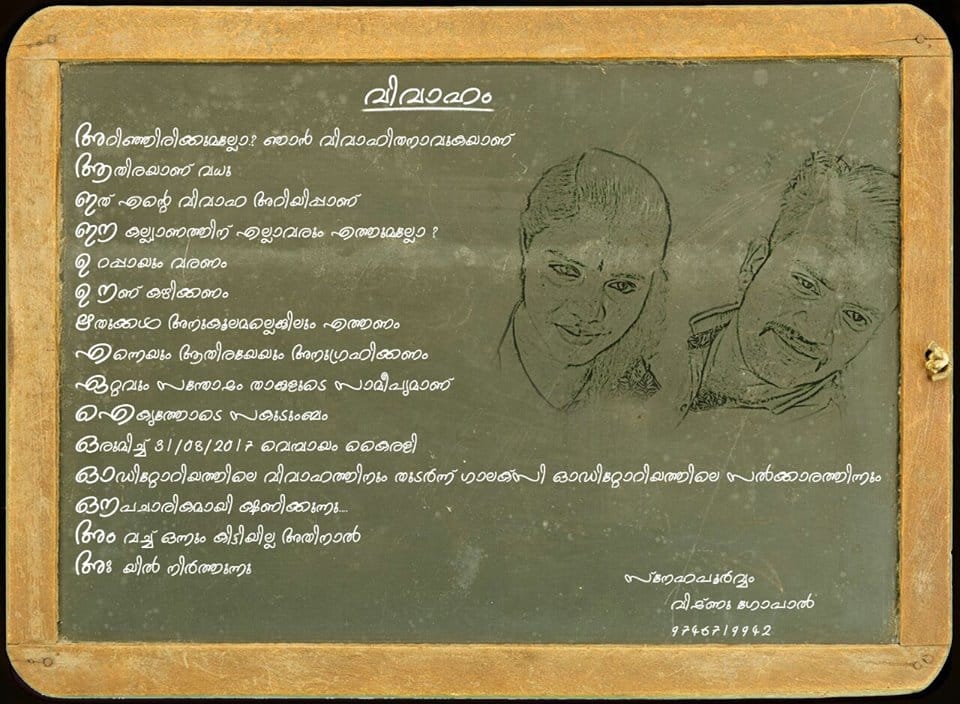 വിവാഹം
അറിഞ്ഞിരിക്കുമല്ലോ? ഞാൻ വിവാഹിതനാവുകയാണ്
ആതിരയാണ് വധു
ഇത് എന്റെ വിവാഹ അറിയിപ്പാണ്
ഈ കല്ല്യാണത്തിന് എല്ലാവരും എത്തുമല്ലോ ?
ഉ റപ്പായും വരണം
ഊണ് കഴിക്കണം
ഋതുക്കൾ അനുകൂലമല്ലെങ്കിലും എത്തണം
എന്നെയും ആതിരയേയും അനുഗ്രഹിക്കണം
ഏറ്റവും സന്തോഷം താങ്കളുടെ സാമീപ്യമാണ്
ഐക്യത്തോടെ സകുടുംബം
ഒരുമിച്ച് 31/08/2017 വെമ്പായം കൈരളി
ഓഡിറ്റോറിയത്തിലെ വിവാഹത്തിനും തുടർന്ന് ഗാലക്സി ഓഡിറ്റോറിയത്തിലെ സൽക്കാരത്തിനും
ഔപചാരികമായി ക്ഷണിക്കുന്നു....
അം വച്ച് ഒന്നും കിട്ടിയില്ല അതിനാൽ
അഃ യിൽ നിർത്തുന്നു
സ്നേഹപൂർവ്വം
വിഷ്ണു ഗോപാൽ
9746719942